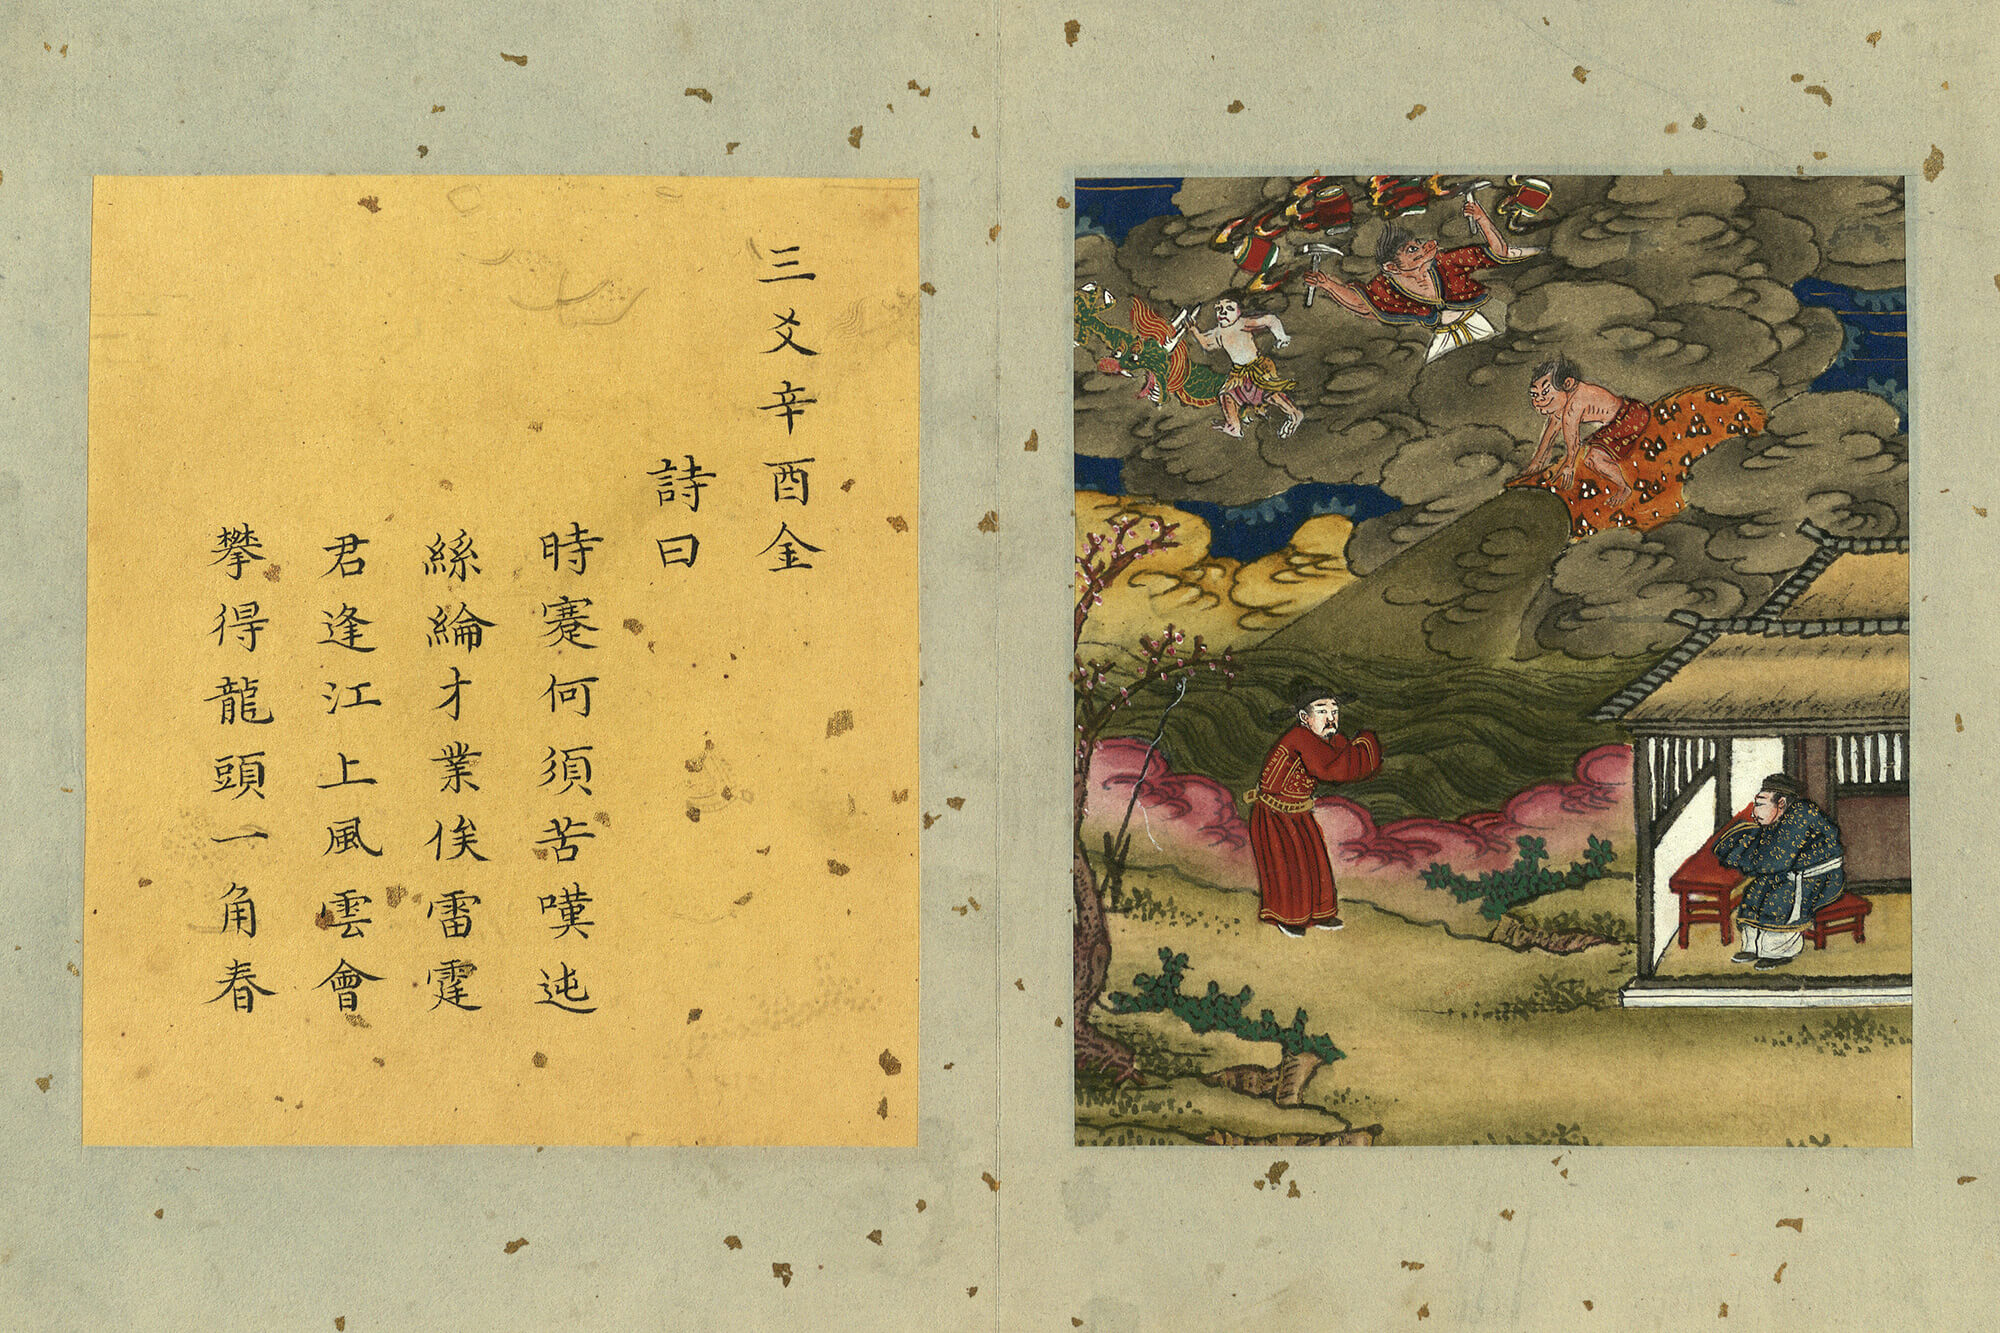 三爻辛酉金
詩曰
時蹇何須苦嘆迍
絲綸才業俟雷霆
君逢江上風雲會
攀得龍頭一角春